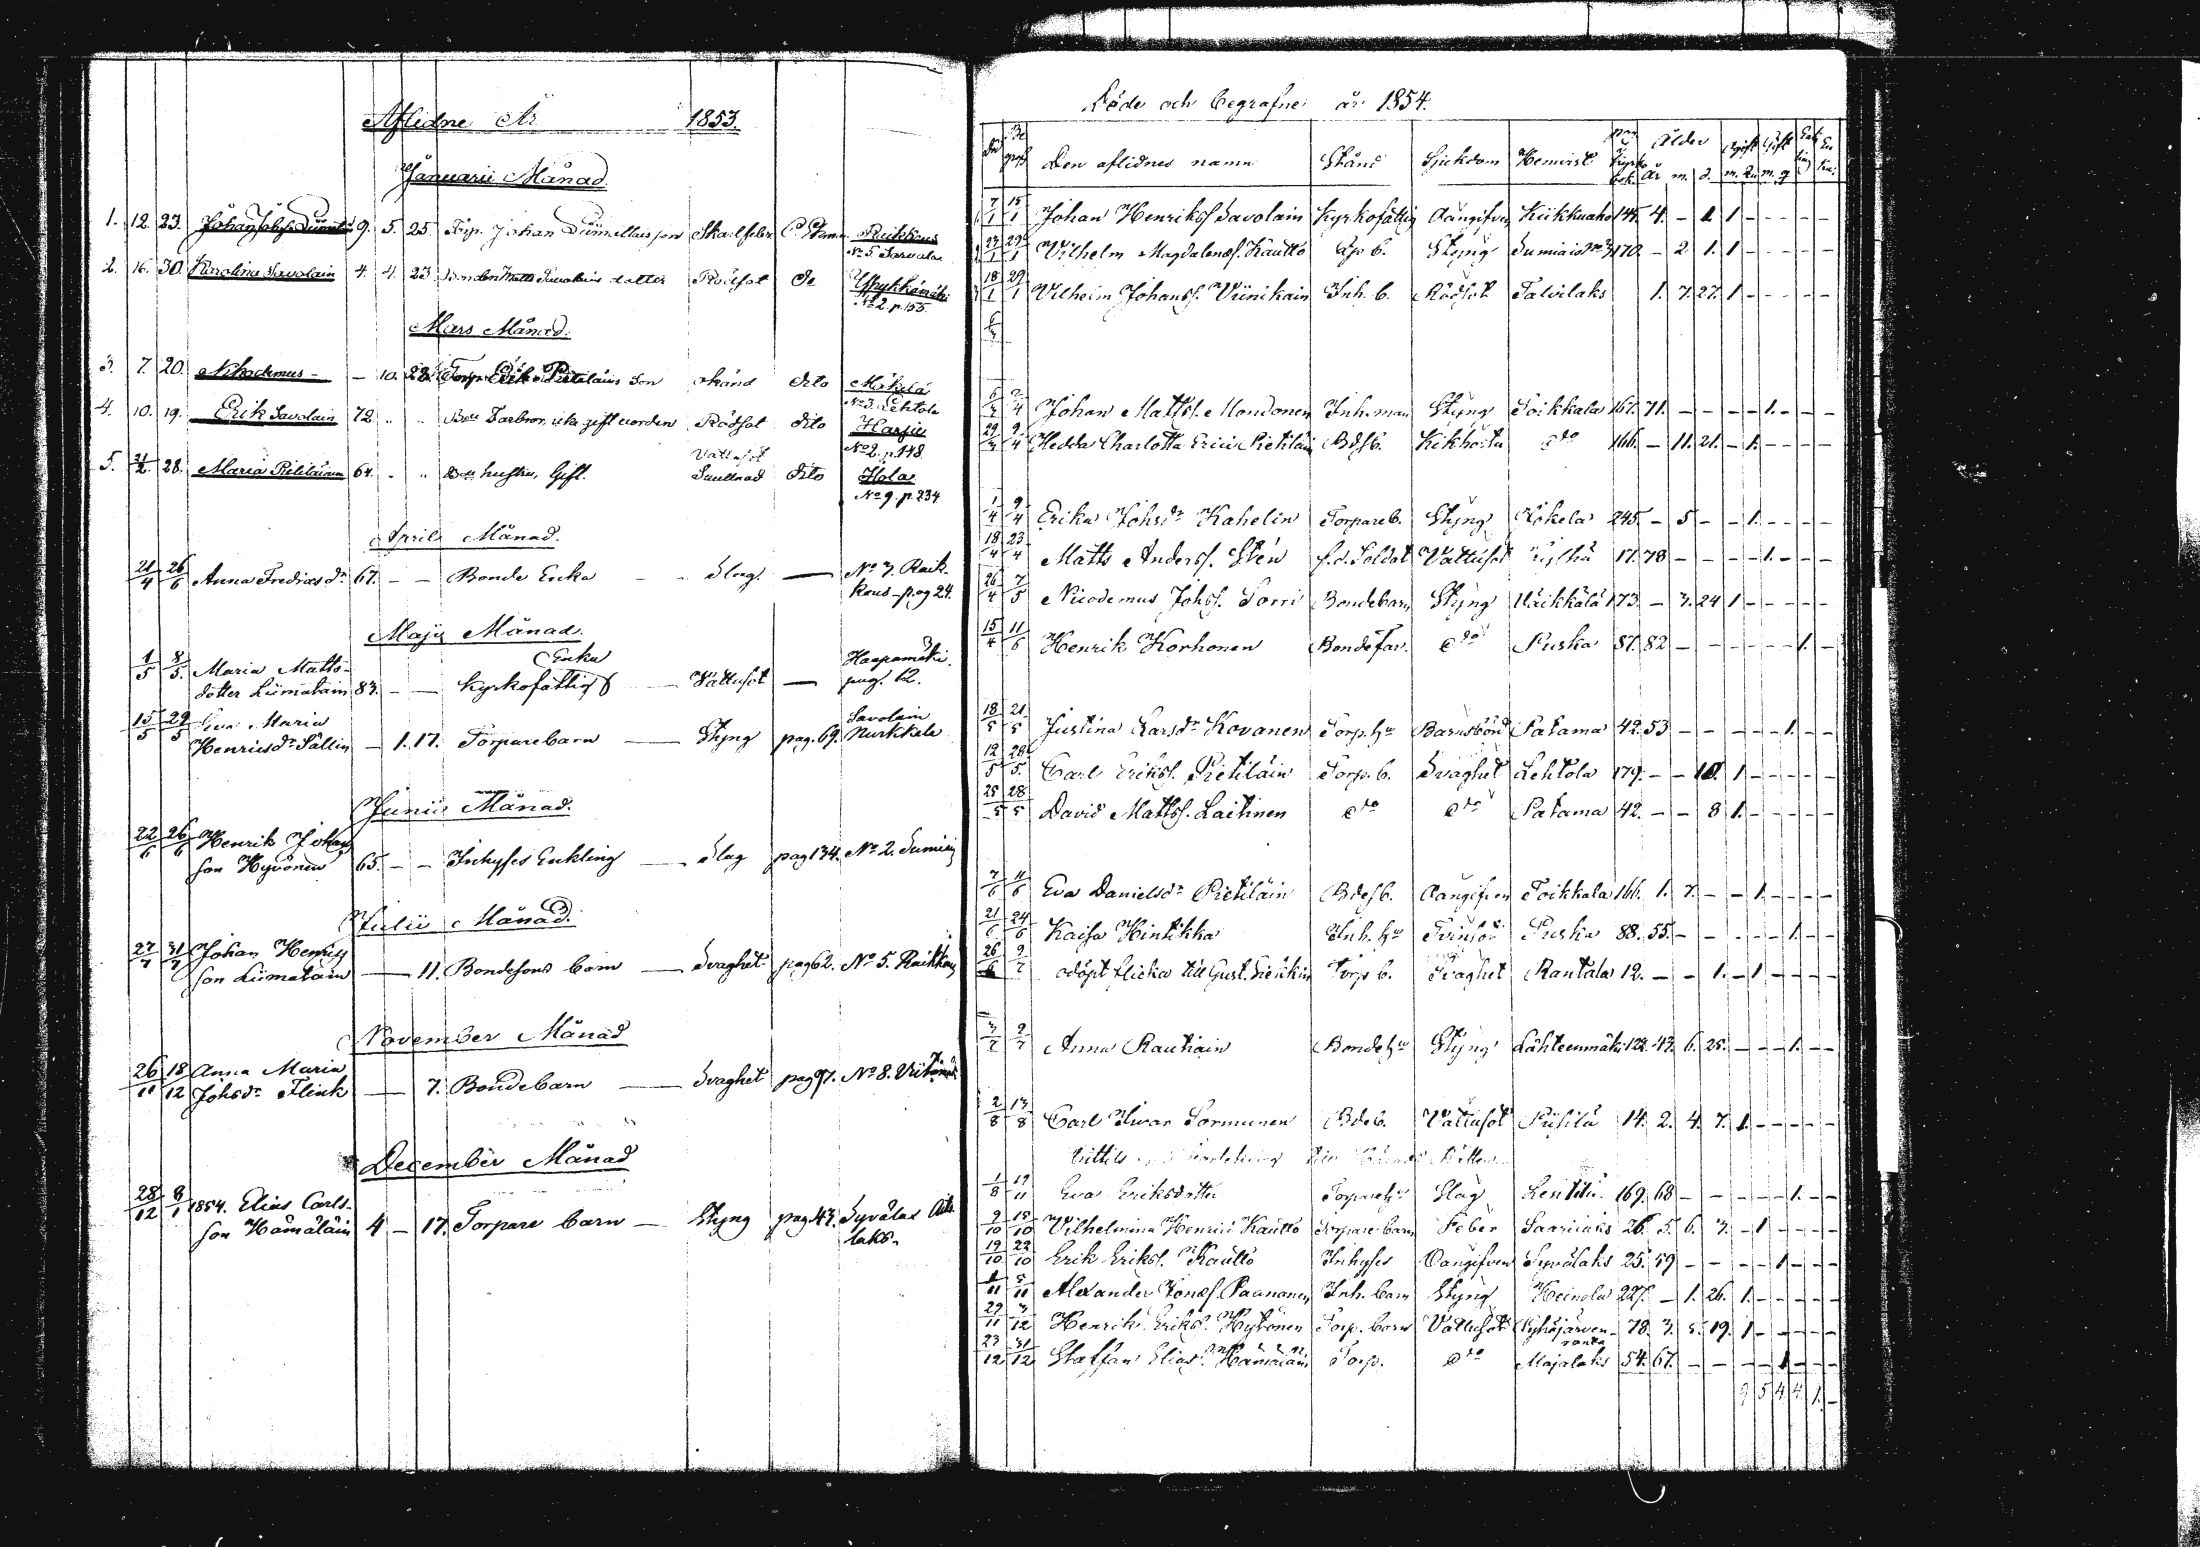 Aflidne År 1853.
Januarii Månad.
1. 12. 23. Johan 9. 5. 25 Torp. Johan son
2. 16. 30. Karolina Savolain 4. 4. 23 Bonden Matts Savolains dotter Rödsot do
No 2 p. 155.
Mars Månad.
3. 7. 20. Nikodemus - - 10. 28. Torp. Erik Pitiläins Son okänd dito Mäkelä
No 3. Lehtola
4. 10. 19. Erik Savolain 72. " " Farbror, icke gift vorden Rödsot dito Harju
No 2. p. 148
Vattusot
5. 21/2. 28. Maria Pitiläinen 64. " " hustru, Gift. dito Hola
No 9. p. 234
Aprill Månad.
21/4 26/6 Anna Fredricsdr 67. - - Bonde Enka - Slag. — No 3. Raik-
kaus pag 24.
Maji Månad.
Enka
1/5 8/5. Maria Matts- Haapamäki.
dotter Liimatain 83. - — Kyrkofattig — Vattusot — pag. 62.
15/5 29/5 Eva Maria Savolain
Henricsdr Sällin — 1. 17. Torparebarn — Styng pag. 69. Nurkkala
Junii Månad.
22/6 26/6 Henrik Johans
son Hyvönen 65. - - Inhyses Enkling — Slag pag 134. No 2. Sumiais
Julii Månad.
27/7 31/7 Johan Henriks
son Liimatain — 11. Bondesons barn — Svaghet pag 62. No 5. Raikkaus
November Månad
26/11 18/12 Anna Maria
Johsdr Flink — 7. Bondebarn — Svaghet pag 97. No 8.
December Månad
28/12 8/1 1854. Elias Carls-
son Hämäläin 4 - 17. Torpare barn — Styng pag. 43. Syvälax
laks.
Döde och begrafne år 1854.
Död Begrf Den aflidnes namn Stånd Sjukdom Hemvist pag i Kyrko bok. Ålder år m. d. Ogift m. qu Gift m. q Enkling Enka
7/1 15/1 Johan Henrikss. Savolain Kyrkofattig Oangifven Kiikkuaho 145. 4. - 1 1 - - - - -
29/1 Vilhelm Magdalenas. Kautto Styng 170. - 2 1. 1 - - - - -
18/1 29/1 Vilhelm Johanss. Viinikain Inh. b. Rödsot Talvilaks 1. 7. 27. 1 - - - - -
2/4 Johan Matts. Mondonen Inh. man Styng Toikkala 167. 71. - - - - 1. - - -
29/3 9/4 Hedda Charlotta Erici Pietiläin Bdes b. Kikhosta do 166. - 11. 21. - 1. - - - -
1/4 9/4 Erika Johsdr Kahelin Torpare b. Styng Kokela 245 - 5 - - 1. - - - -
18/4 23/4 Matts Anders. Sten f.d. Soldat Vattusot 17. 78 - - - - 1. - - -
26/4 7/5 Nicodemus Johs. Sorri Bondebarn Styng 173. - 3. 24 1 - - - - -
15/4 11/6 Henrik Korhonen Bondefar. do Puska 87. 82 - - - - - - 1. -
18/5 21/5 Justina Larsdr Kovanen Torp. hu Barnsbörd Patama 42. 53 - - - - - 1. - -
12/5 28/5. Carl Eriks. Pietiläin Torp. b. Svaghet Lehtola 179. - - 10. 1 - - - - -
25/5 28/5 David Matts. Laitinen do do Patama 42. - - 8 1. - - - - -
7/6 11/6 Eva Danielsdr Pietiläin Bdes b. Oangifven Toikkala 166. 1. 7. - - 1. - - - -
21/6 24/6 Kaisa Hintikka Inh. hu Tvinsot Puska 88. 55. - - - - - 1. - -
26/6 9/7 odöpt flicka till Gust. Torp b. Svaghet Rantala 12. - - 1. - 1 - - - -
3/7 9/7 Anna Rautiain Bonde hu Styng Lähteenmäki 122. 43. 6. 25. - - - 1. - -
2/8 13/8 Carl Ivar Sormunen Bde b. Vattusot Piisilä 14. 2. 4. 7. 1. - - - - -
1/8 19/11 Eva Eriksdotter Torpare hu Slag 169. 68 - - - - - 1. - -
9/10 15/10 Vilhelmina Henrici Kautto Torpare barn Feber Saarilaks 26. 5. 6. 3. - 1 - - - -
19/10 22/10 Erik Eriks. Kautto Inhyses Oangifven Syvälaks 25. 59 - - - - 1 - - -
5/11 Alexander Jonas. Paananen Inh. barn Styng Heinola 227. - 1. 26. 1. - - - - -
29/11 3/12 Henrik Eriks. Hytönen Torp. barn Vattusot Pyhäjärven- 78. 3. 5. 19. 1 - - - - -
ranta
23/12 31/12 Staffan Elias. Hämäläin Torp. do Majalaks 54. 67. - - - - 1 - - -
9 5 4 4. 1. -